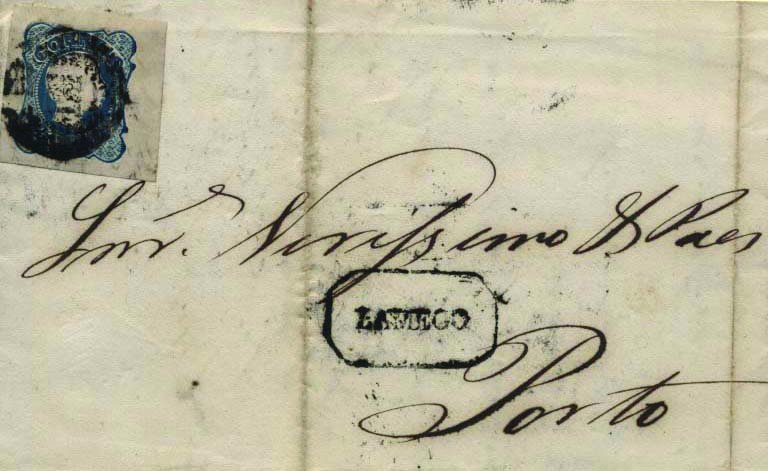 CORR
Snr. Verissimo & Paes
LAMEGO
Porto